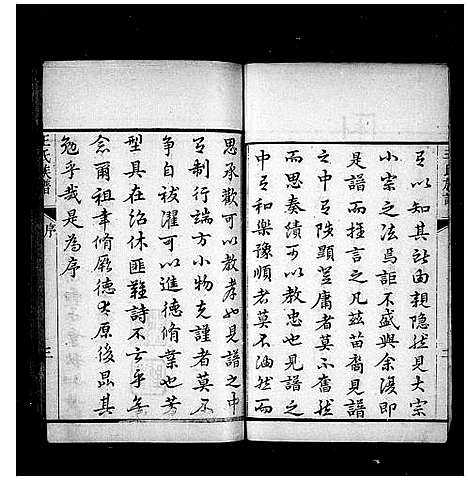 有以知其社由親隐然見大宗
小宗之法焉詎不盛與余復即
是譜而推言之凡兹苗裔見譜
之中有佚顕登庸者莫不奮然
而思奏績可以教忠也見譜之
中有和樂豫順者莫不油然而
思承歡可以教孝也見譜之中
有制行端方小物克謹者莫不
争自祓濯可以進德脩業也芳
型具在紹休匪難詩不云乎無
念爾祖聿脩厥德太原後昆其
勉乎哉是為序
王氏族譜
序
三